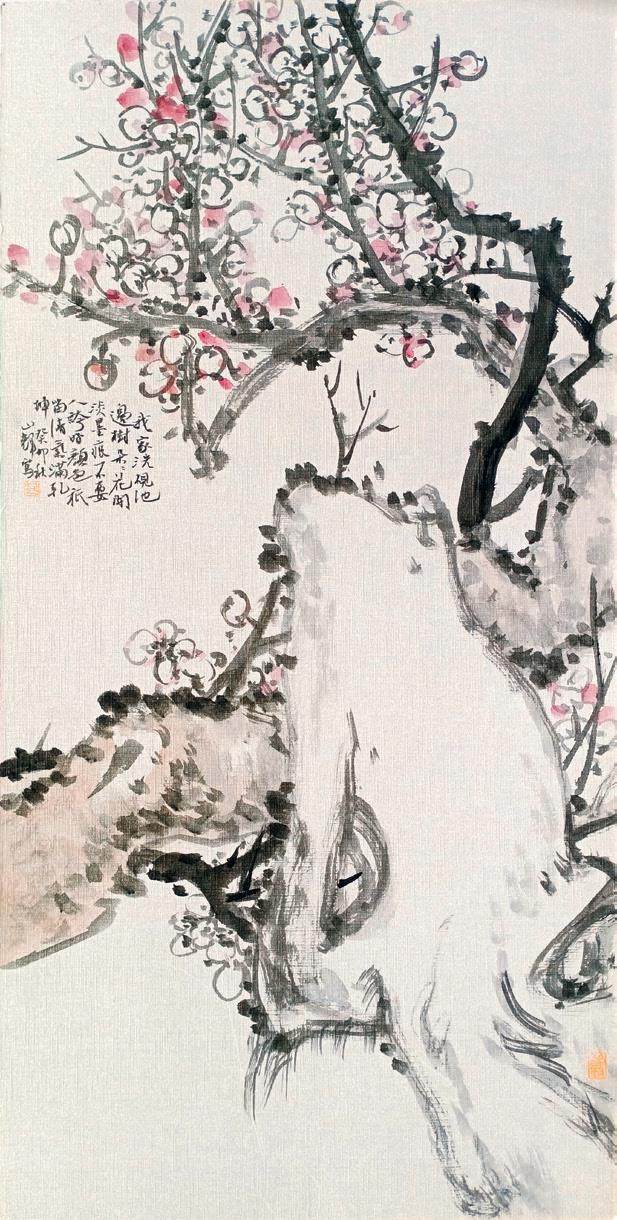 我家洗硯池
邊樹朵〻花開
淡墨痕不要
人誇好顏色祇
留清氣滿乾
坤癸卯秋
山静寫